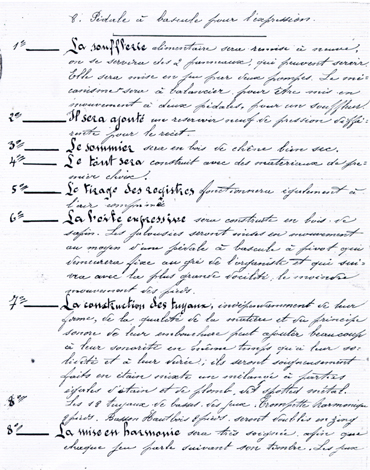 C. Pédale à bascule pour l'expression.
1º La soufflerie alimentaire sera remise à neuve,
on se servira des 2 panneaux, qui peuvent servir.
Elle sera mise en jeu par deux pompes. Le mé-
canisme sera à balancier pour être mis en
mouvement à deux pédales, pour un souffleur.
2º Il sera ajouté un reservoir neuf de pression diffé-
rente pour le récit.
3º Le sommier sera en bois de chêne bien sec.
4º Le tout sera construit avec des matériaux de pre-
mier choix.
5º Le tirage des registres fonctionnera également à
l'air comprimé
6º La boîte expressive sera construite en bois de
sapin. Les jalousies seront mises en mouvement
au moyen d'une pédale à bascule à pivot qui
demeurera fixe au gré de l'organiste et qui sui-
vra avec la plus grande docilité, le moindre
mouvement des pieds.
7º La construction des tuyaux, indépendamment de leur
forme, de la qualité de la matière et du principe
sonore de leur embouchure peut ajouter beaucoup
à leur sonorité en même temps qu'à leur so-
lidité et à leur durée; ils seront soigneusement
faits en étain mixte ou mélangé à parties
égales d'étain et de plomb, dit spotted métal.
8º Les 12 tuyaux de basse des jeux Trompette harmonique
8 pieds. Basson Hautbois 8 pieds. seront doubles en zing
8º La mise en harmonie sera très soignée, afin que
chaque jeu parle suivant son timbre. Les jeux